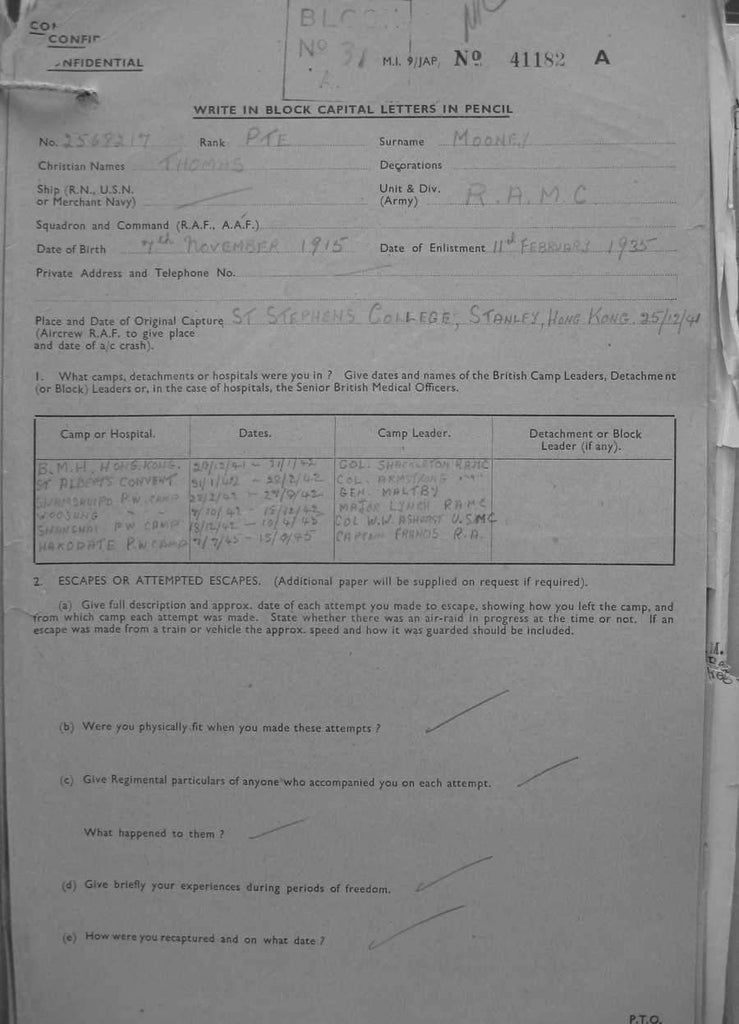 CONFIDENTIAL
BLOCK
Nº 31
A.
M.I. 9/JAP, Nº 41182 A
WRITE IN BLOCK CAPITAL LETTERS IN PENCIL
No. 2568217 Rank PTE Surname MOONEY
Christian Names THOMAS Decorations
Ship (R.N., U.S.N. or Merchant Navy) Unit & Div. (Army) R.A.M.C
Squadron and Command (R.A.F., A.A.F.)
Date of Birth 7th NOVEMBER 1915 Date of Enlistment 11th FEBRUARY 1935
Private Address and Telephone No.
Place and Date of Original Capture ST STEPHENS COLLEGE, STANLEY, HONG KONG. 25/12/41
(Aircrew R.A.F. to give place
and date of a/c crash).
1. What camps, detachments or hospitals were you in ? Give dates and names of the British Camp Leaders, Detachment
(or Block) Leaders or, in the case of hospitals, the Senior British Medical Officers.
Camp or Hospital. Dates. Camp Leader. Detachment or Block Leader (if any).
B.M.H. HONG.KONG. 29/12/41 - 31/1/42 COL. SHACKLETON RAMC
ST ALBERTS CONVENT 31/1/42 - 28/2/42 COL. ARMSTRONG " "
SHAMSHUIPO P.W. CAMP 28/2/42 - 27/9/42 GEN. MALTBY
WOOSUNG " " 7/10/42 - 18/12/42 MAJOR LYNCH RAMC
SHANGHAI PW CAMP 18/12/42 - 10/4/45 COL W.W. ASHURST U.S.M.C
HAKODATE P.W CAMP 7/7/45 - 15/9/45 CAPTAIN FRANCIS R.A.
2. ESCAPES OR ATTEMPTED ESCAPES. (Additional paper will be supplied on request if required).
(a) Give full description and approx. date of each attempt you made to escape, showing how you left the camp, and
from which camp each attempt was made. State whether there was an air-raid in progress at the time or not. If an
escape was made from a train or vehicle the approx. speed and how it was guarded should be included.
(b) Were you physically fit when you made these attempts ?
(c) Give Regimental particulars of anyone who accompanied you on each attempt.
What happened to them ?
(d) Give briefly your experiences during periods of freedom.
(e) How were you recaptured and on what date ?
P.T.O.